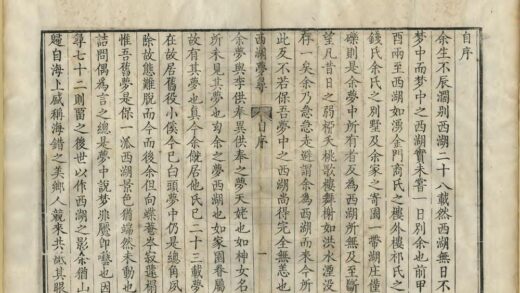 自序
余生不辰濶别西湖二十八載然西湖無日不
夢中而夢中之西湖實未嘗一日别余也前甲
酉兩至西湖如湧金門商氏之樓外樓祁氏之
錢氏余氏之别墅及余家之寄園一帶湖庄僅
礫則是余夢中所有者反為西湖所無及至斷
望凡昔日之弱栁夭桃歌樓舞榭如洪水湮没
存一矣余乃急急走避謂余為西湖而來今所
此反不若保吾夢中之西湖尚得完全無恙也
西湖夢尋 自序 一
余夢與李供奉異供奉之夢天姥也如神女名
所未見其夢也幻余之夢西湖也如家園眷屬
故有其夢也真今余僦居他氏已二十三載夢
在故居舊役小傒今已白頭夢中仍是總角夙
除故態難脫而今而後余但向蝶菴岑寂蘧榻
惟吾舊夢是保一派西湖景色猶端然未動也
詰問偶為言之總是夢中說夢非魘即囈也因
尋七十二則畱之後世以作西湖之影余猶山
歸自海上盛稱海錯之美鄉人競來共舐其眼